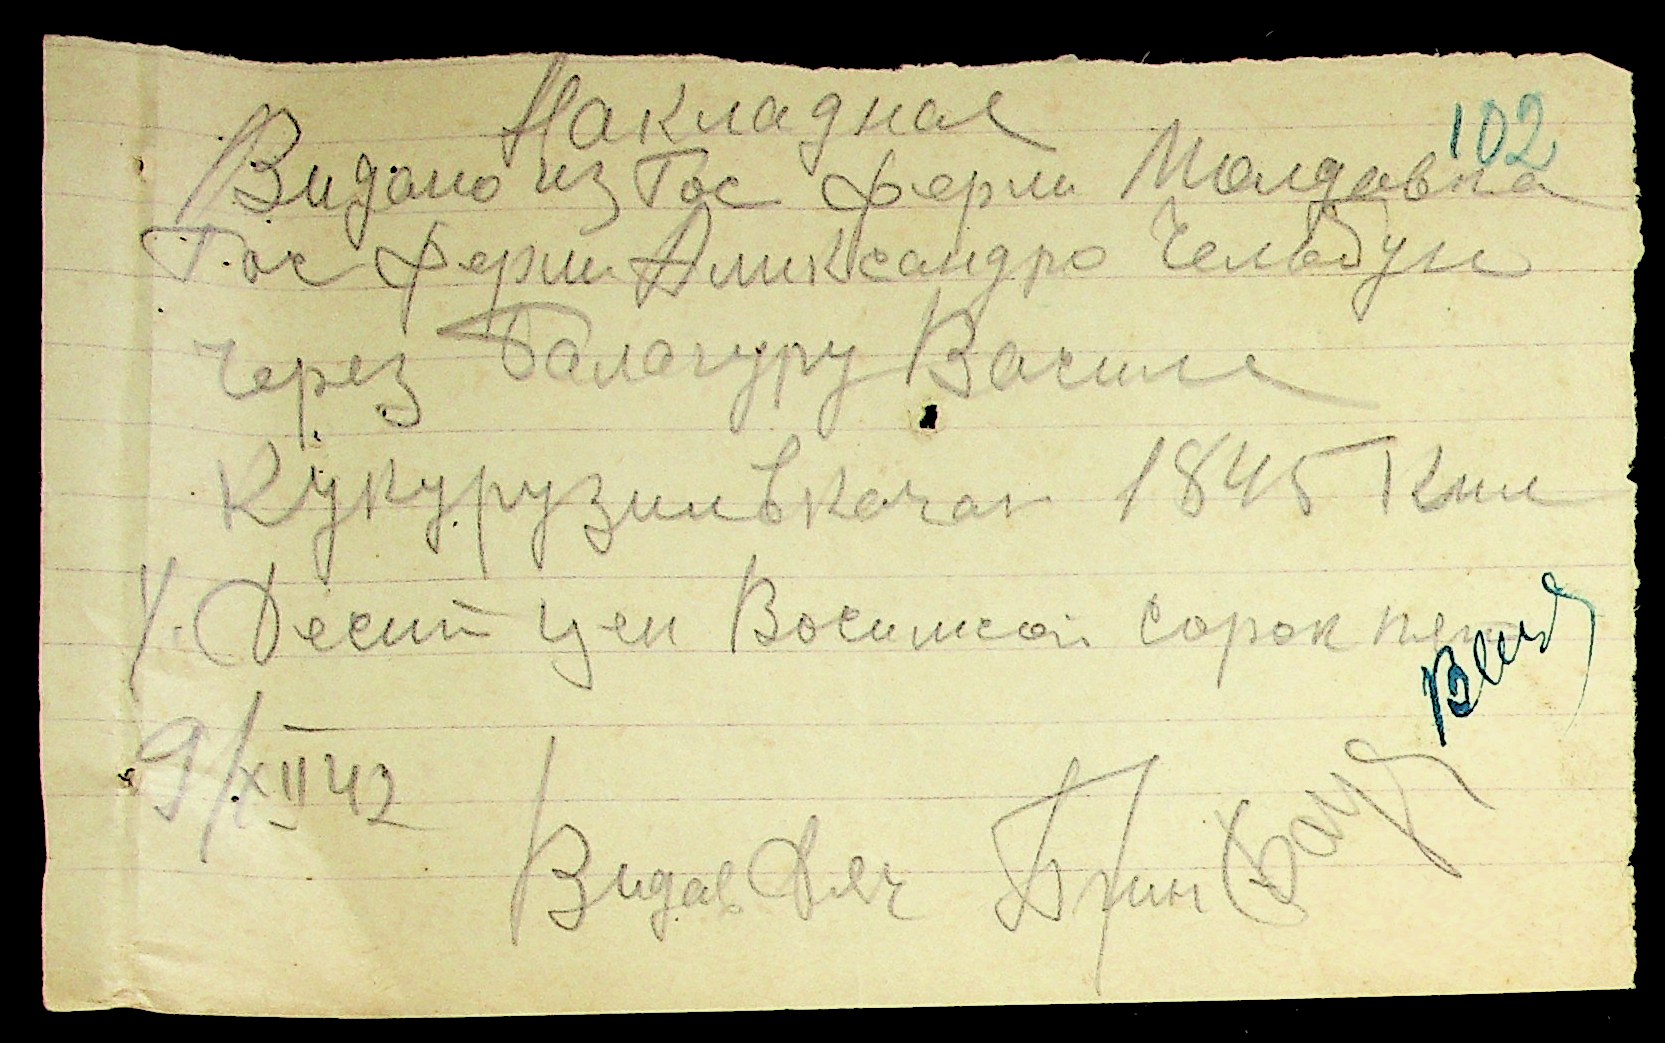 Накладная
102
Видано из Гос ферми Молдавка
Гос ферми Аликсандро Чельбуки
через Балагуру Василе
Кукурузи в качан 1845 Кил
Десит цен Восимсот сорок пят
9/XII 42
Видав Дяч Прин Бау